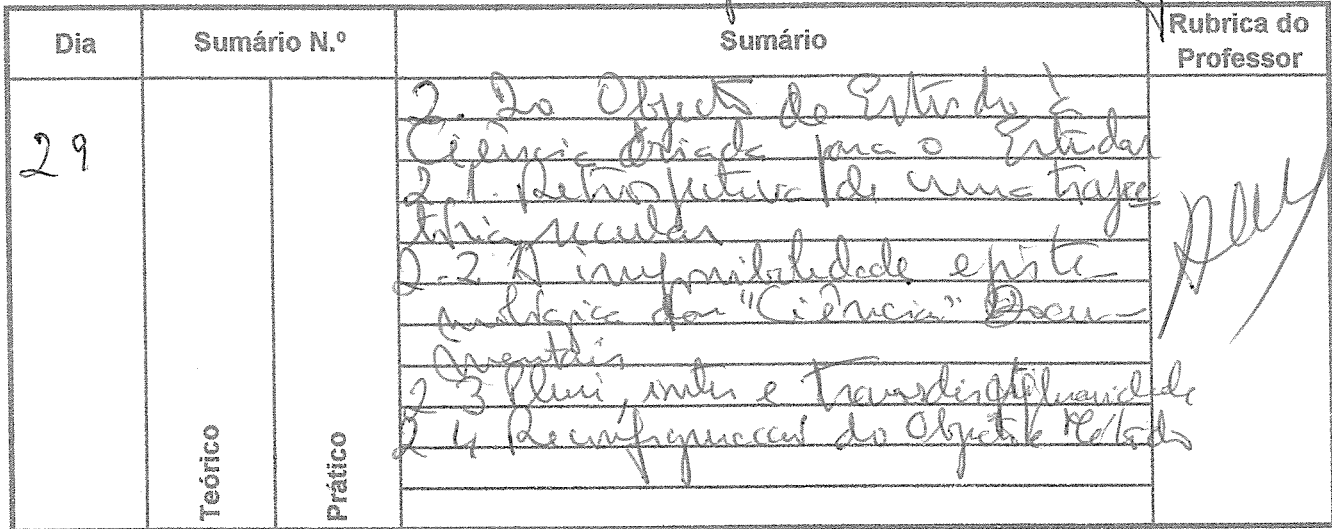 Dia
Sumário N.º
Sumário
Rubrica do
Professor
29
Teórico
Prático
2. Do Objecto de Estudo à
Ciência criada para o Estudar
2.1. Retrospectiva de uma traje
tória secular
2.2 A impossibilidade episte-
mológica das "Ciências" Docu-
mentais
2.3 Pluri, inter e transdisciplinaridade
2.4 Reconfiguração do Objecto e Método